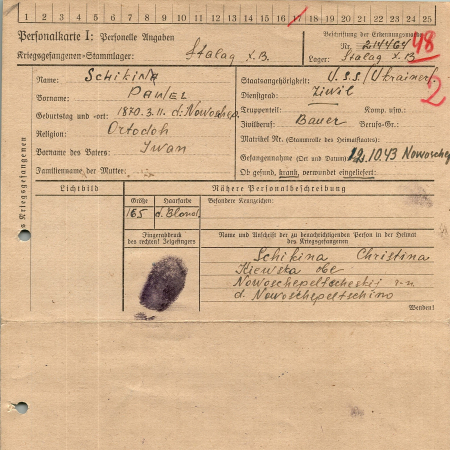 1 2 3 4 5 6 7 8 9 10 11 12 13 14 15 16 17 18 19 20 21 22 23 24 25
Personalkarte I: Personelle Angaben
Kriegsgefangenen-Stammlager: Stalag X.B.
Beschriftung der Erkennungsmarke
Nr. 214464
Lager: Stalag X.B
48
2
des Kriegsgefangenen
Name: Schikina
Vorname: Pawel
Geburtstag und -ort: 1870.3.11. d. Nowoschep.
Religion: Ortodoh
Vorname des Vaters: Iwan
Familienname der Mutter:
Staatsangehörigkeit: U.S.S./Ukrainer/.
Dienstgrad: Ziwil
Truppenteil: Komp. usw.:
Zivilberuf: Bauer Berufs-Gr.:
Matrikel Nr. (Stammrolle des Heimatstaates):
Gefangennahme (Ort und Datum): 12.10.43 Nowoschep
Ob gesund, krank, verwundet eingeliefert:
Lichtbild
Nähere Personalbeschreibung
Größe Haarfarbe Besondere Kennzeichen:
165 d. Blond.
Fingerabdruck
des rechten! Zeigefingers
Name und Anschrift der zu benachrichtigenden Person in der Heimat
des Kriegsgefangenen
Schikina Christina
Kiewska obl.
Nowoschepeltscheskii r-n
d. Nowoschepeltschino
Wenden!